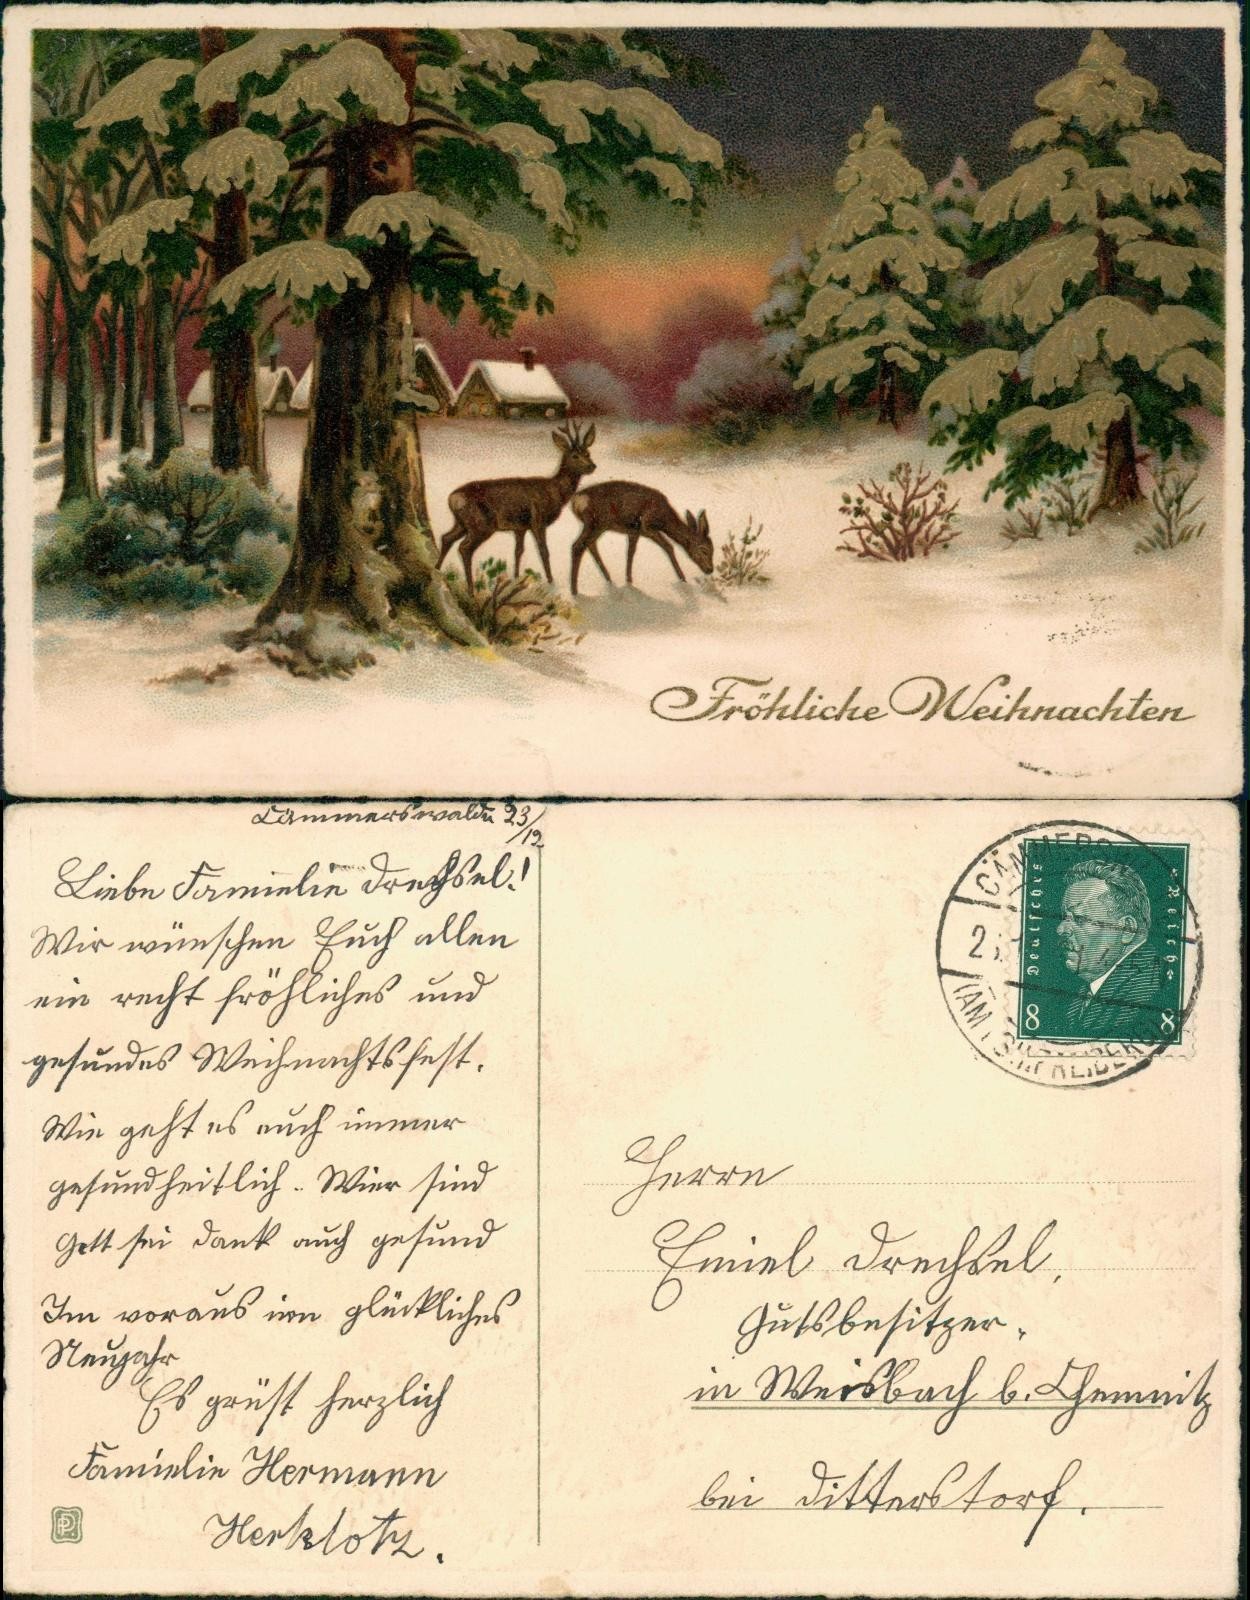 Fröhliche Weihnachten
Cämmerswalde 23/12
Liebe Familie Drechsel!
Wir wünschen Euch allen
ein recht fröhliches und
gesundes Weihnachtsfest.
Wie geht es euch immer
gesundheitlich. Wier sind
Gott sei dank auch gesund
Im voraus ien glückliches
Neujahr
Es grüst herzlich
Famielie Hermann
Herklotz.
Deutsches Reich
8 8
CÄMMERS
2
(AMTSH. FREIBERG)
Herrn
Emiel Drechsel,
Gutsbesitzer,
in Weisbach b. Chemnitz
bei Ditterstorf.